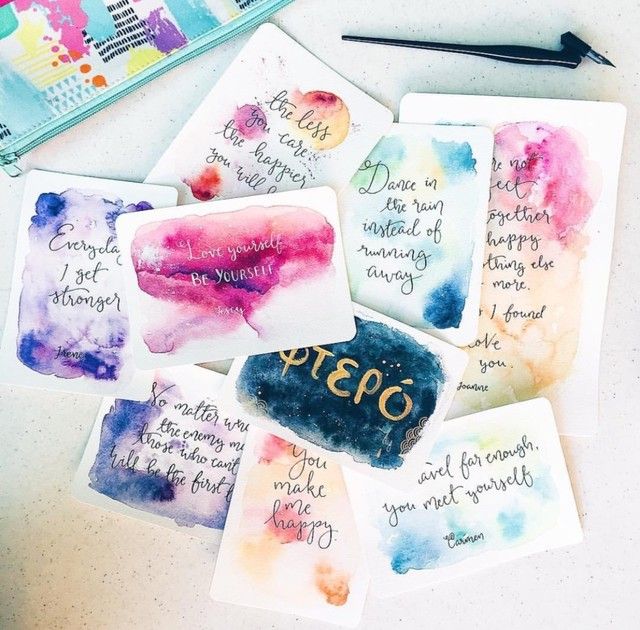 the less
you care
the happier
you will
Dance in
the rain
instead of
running
away
not
together
happy
else
more.
I found
you.
Joanne
Everyday
I get
stronger
Irene
Love yourself
BE YOURSELF
φτερό
No matter
the enemy
those who can't
will be the first
You
make
me
happy.
far enough,
you meet yourself
Carmen